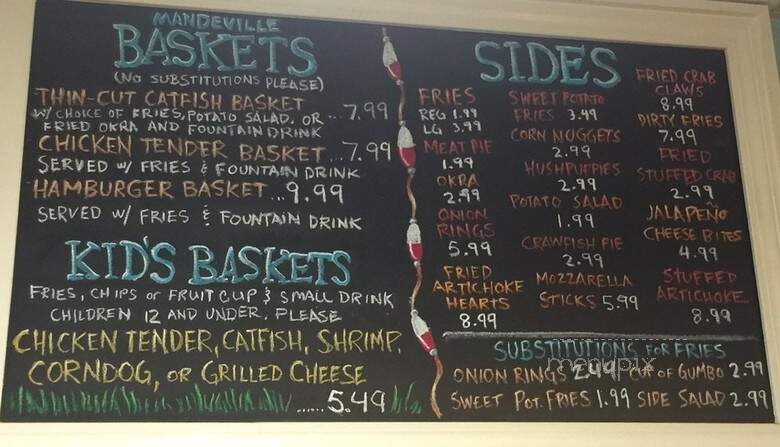 MANDEVILLE
BASKETS
(NO SUBSTITUTIONS PLEASE)
THIN-CUT CATFISH BASKET
W/ CHOICE OF FRIES, POTATO SALAD, OR ...7.99
FRIED OKRA AND FOUNTAIN DRINK
CHICKEN TENDER BASKET...7.99
SERVED W/ FRIES & FOUNTAIN DRINK
HAMBURGER BASKET...9.99
SERVED W/ FRIES & FOUNTAIN DRINK
KID'S BASKETS
FRIES, CHIPS or FRUIT CUP & SMALL DRINK
CHILDREN 12 AND UNDER, PLEASE
CHICKEN TENDER, CATFISH, SHRIMP,
CORNDOG, OR GRILLED CHEESE
......5.49
SIDES
FRIES
REG 1.99
LG 3.99
MEAT PIE
1.99
OKRA
2.99
ONION
RINGS
5.99
FRIED
ARTICHOKE
HEARTS
8.99
SWEET POTATO
FRIES 3.49
CORN NUGGETS
2.99
HUSHPUPPIES
2.99
POTATO SALAD
1.99
CRAWFISH PIE
2.99
MOZZARELLA
STICKS 5.99
FRIED CRAB
CLAWS
8.99
DIRTY FRIES
7.99
FRIED
STUFFED CRAB
2.99
JALAPEÑO
CHEESE BITES
4.99
STUFFED
ARTICHOKE
8.99
SUBSTITUTIONS FOR FRIES
ONION RINGS 2.49 CUP OF GUMBO 2.99
SWEET POT. FRIES 1.99 SIDE SALAD 2.99
menupix